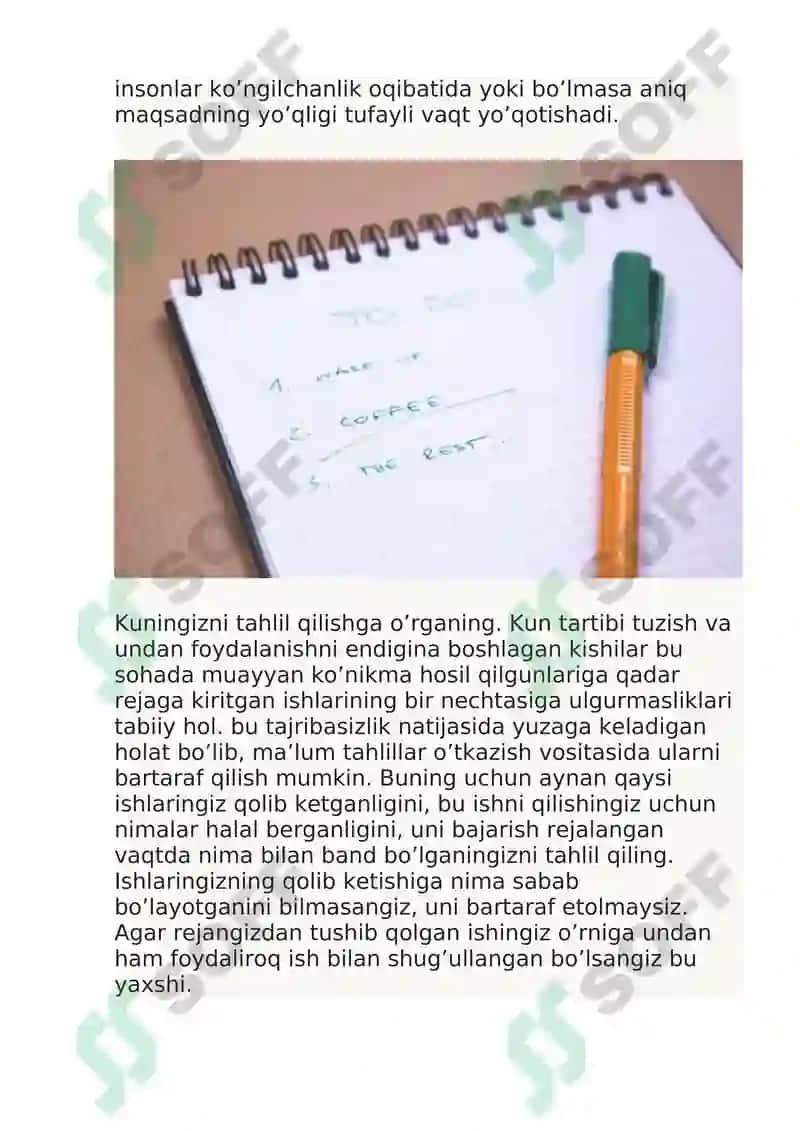 insonlar ko’ngilchanlik oqibatida yoki bo‘lmasa aniq
maqsadning yo’qligi tufayli vaqt yo’qotishadi.
SOFF
SOFF
TO DO
1. WAKE UP
2. COFFEE
3. THE REST...
SOFF
SOFF
Kuningizni tahlil qilishga o’rganing. Kun tartibi tuzish va
undan foydalanishni endigina boshlagan kishilar bu
sohada muayyan ko’nikma hosil qilgunlariga qadar
rejaga kiritgan ishlarining bir nechtasiga ulgurmasliklari
tabiiy hol. bu tajribasizlik natijasida yuzaga keladigan
holat bo’lib, ma’lum tahlillar o’tkazish vositasida ularni
bartaraf qilish mumkin. Buning uchun aynan qaysi
ishlaringiz qolib ketganligini, bu ishni qilishingiz uchun
nimalar halal berganligini, uni bajarish rejalangan
vaqtda nima bilan band bo’lganingizni tahlil qiling.
Ishlaringizning qolib ketishiga nima sabab
bo’layotganini bilmasangiz, uni bartaraf etolmaysiz.
Agar rejangizdan tushib qolgan ishingiz o’rniga undan
ham foydaliroq ish bilan shug’ullangan bo’lsangiz bu
yaxshi.
SOFF
SOFF